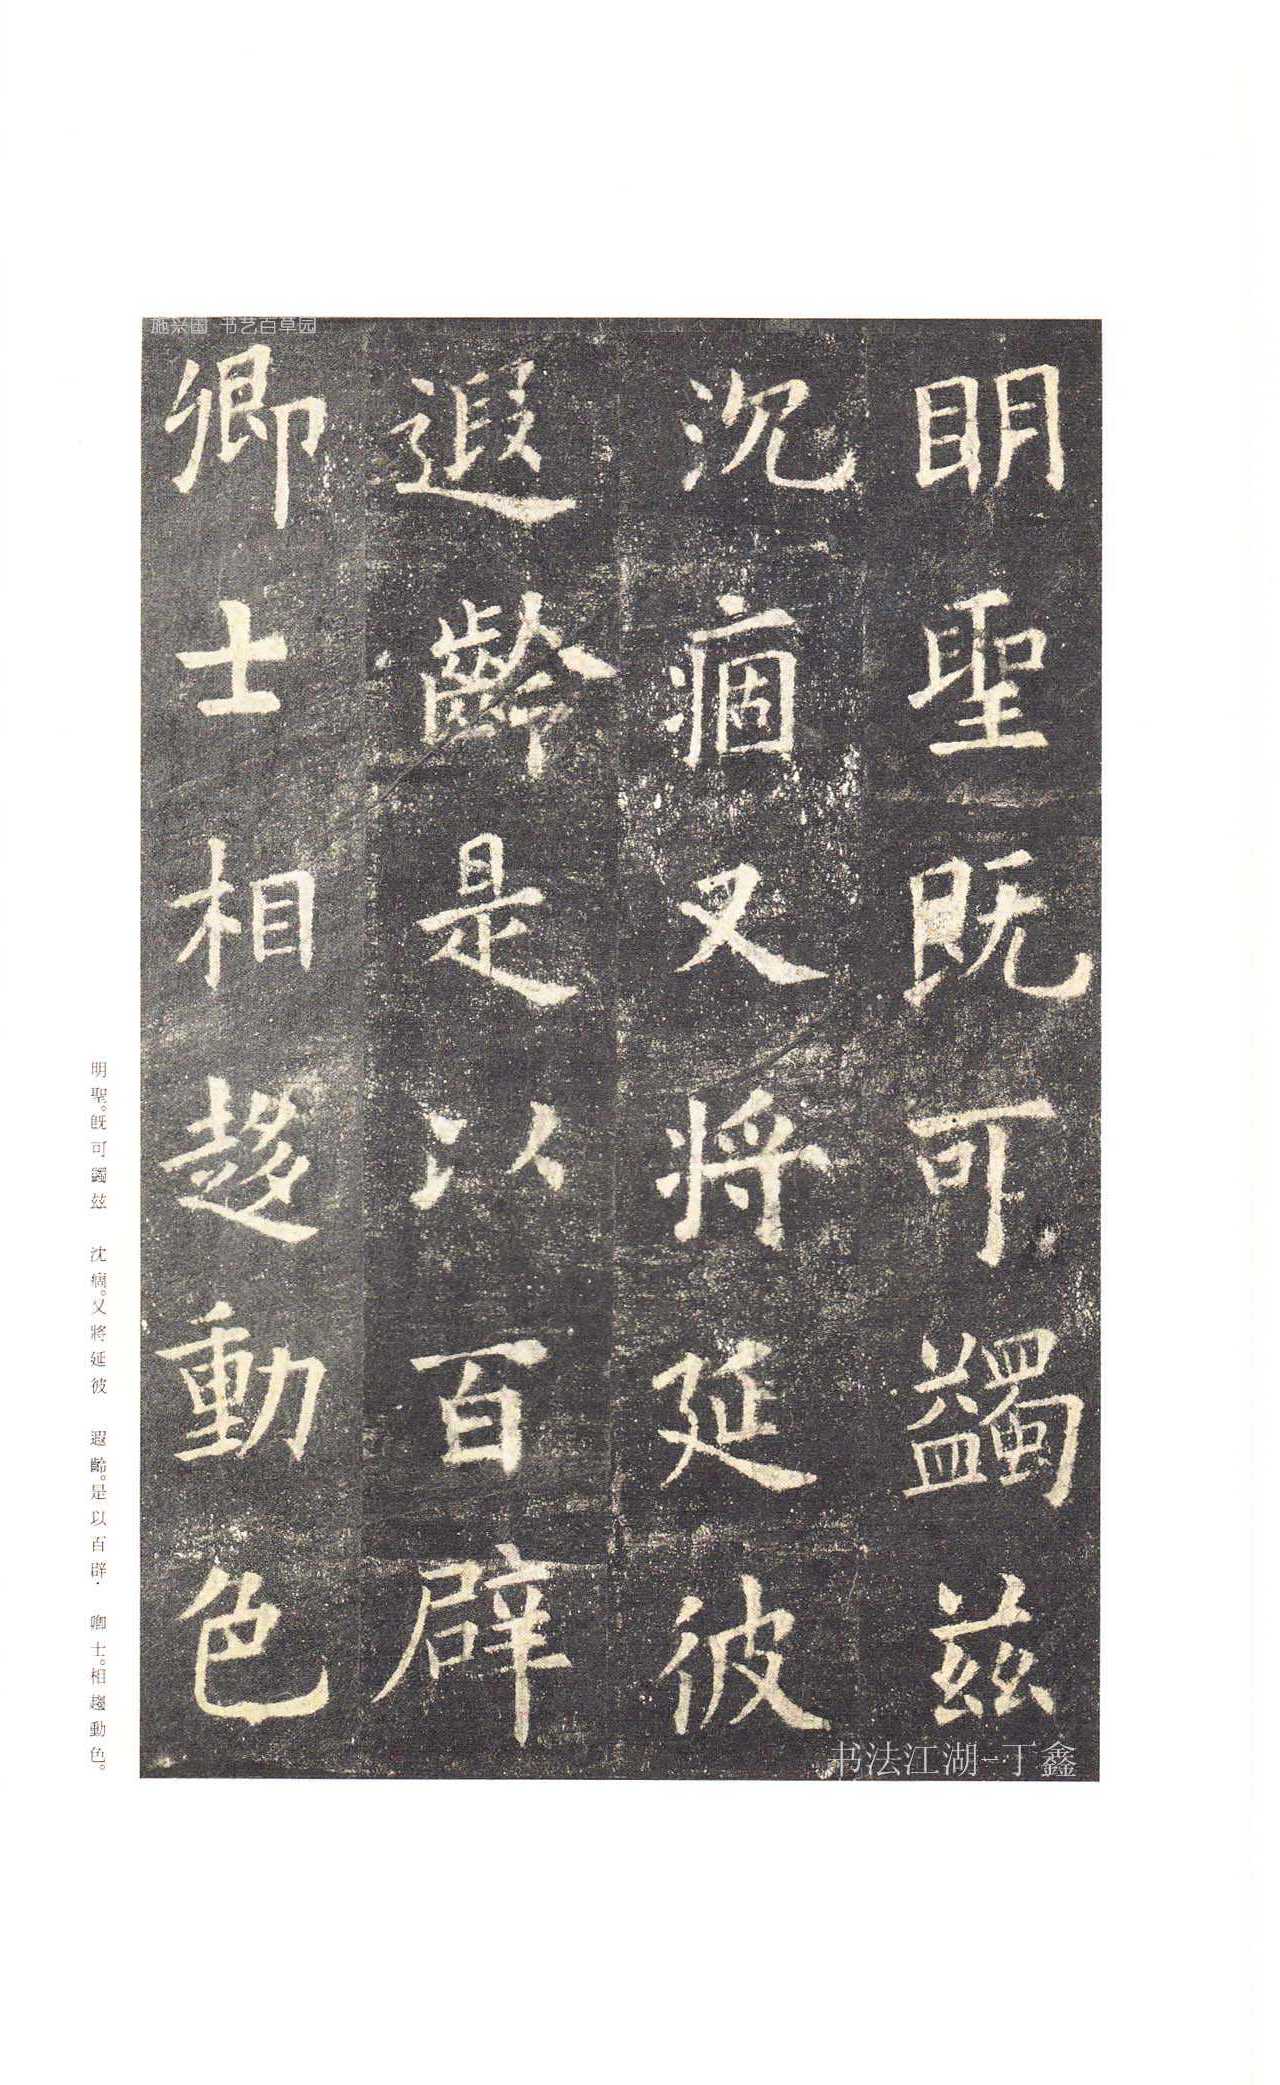 明聖既可蠲茲
沉痼又將延彼
遐齡是以百辟
卿士相趍動色
明聖。既可蠲玆　沈痼。又將延彼　遐齡。是以百辟．卿士。相趨動色。
施兴国 书艺百草园
书法江湖-丁鑫